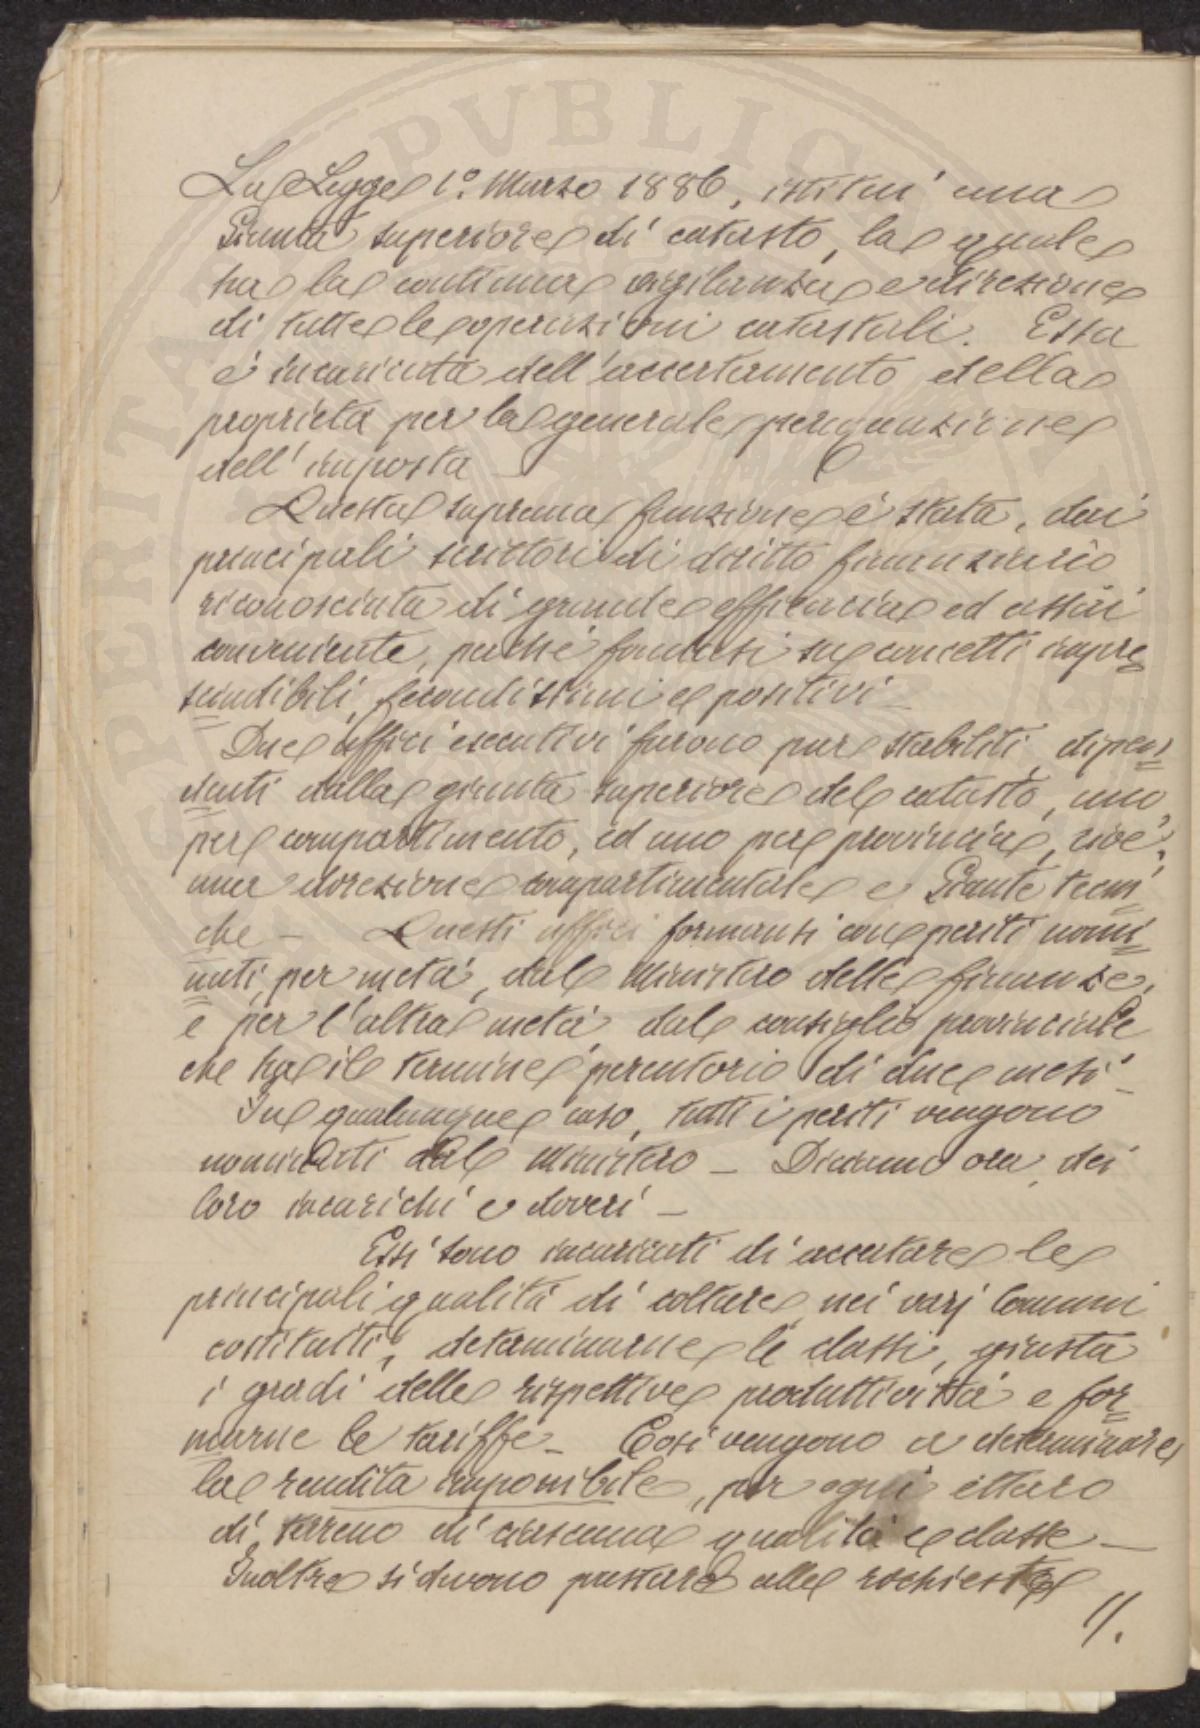 La Legge 1º Marzo 1886, istituì una
Giunta superiore di catasto, la quale
ha la continua vigilanza e direzione
di tutte le operazioni catastali. Essa
è incaricata dell'accertamento della
proprietà per la generale perequazione
dell'imposta –
Questa suprema funzione è stata, dai
principali scrittori di diritto finanziario
riconosciuta di grande efficacia ed assai
conveniente, perchè fondasi su concetti impre=
scindibili, fecondissimi e positivi –
Due uffici esecutivi furono pure stabiliti, dipen=
denti dalla giunta superiore del catasto, uno,
per compartimento, ed uno per provincia, cioè,
una direzione compartimentale e Giunte tecni=
che – Questi uffici formansi con periti nomi=
nati, per metà, dal Ministero delle finanze,
e per l'altra metà, dal consiglio provinciale
che ha il termine perentorio di due mesi –
In qualunque caso, tutti i periti vengono
nominati dal Ministero – Diciamo ora, dei
loro incarichi e doveri –
Essi sono incaricati di accertare le
principali qualità di colture, nei varj Comuni
costituiti, determinarne le classi, giusta
i gradi delle rispettive produttività e for=
marne le tariffe – Così vengono a determinare
la rendita imponibile, per ogni ettaro
di terreno di ciascuna qualità e classe –
Inoltre si devono prestare alle richieste
//.
PUBLICA
VERITAS
SPERITAS